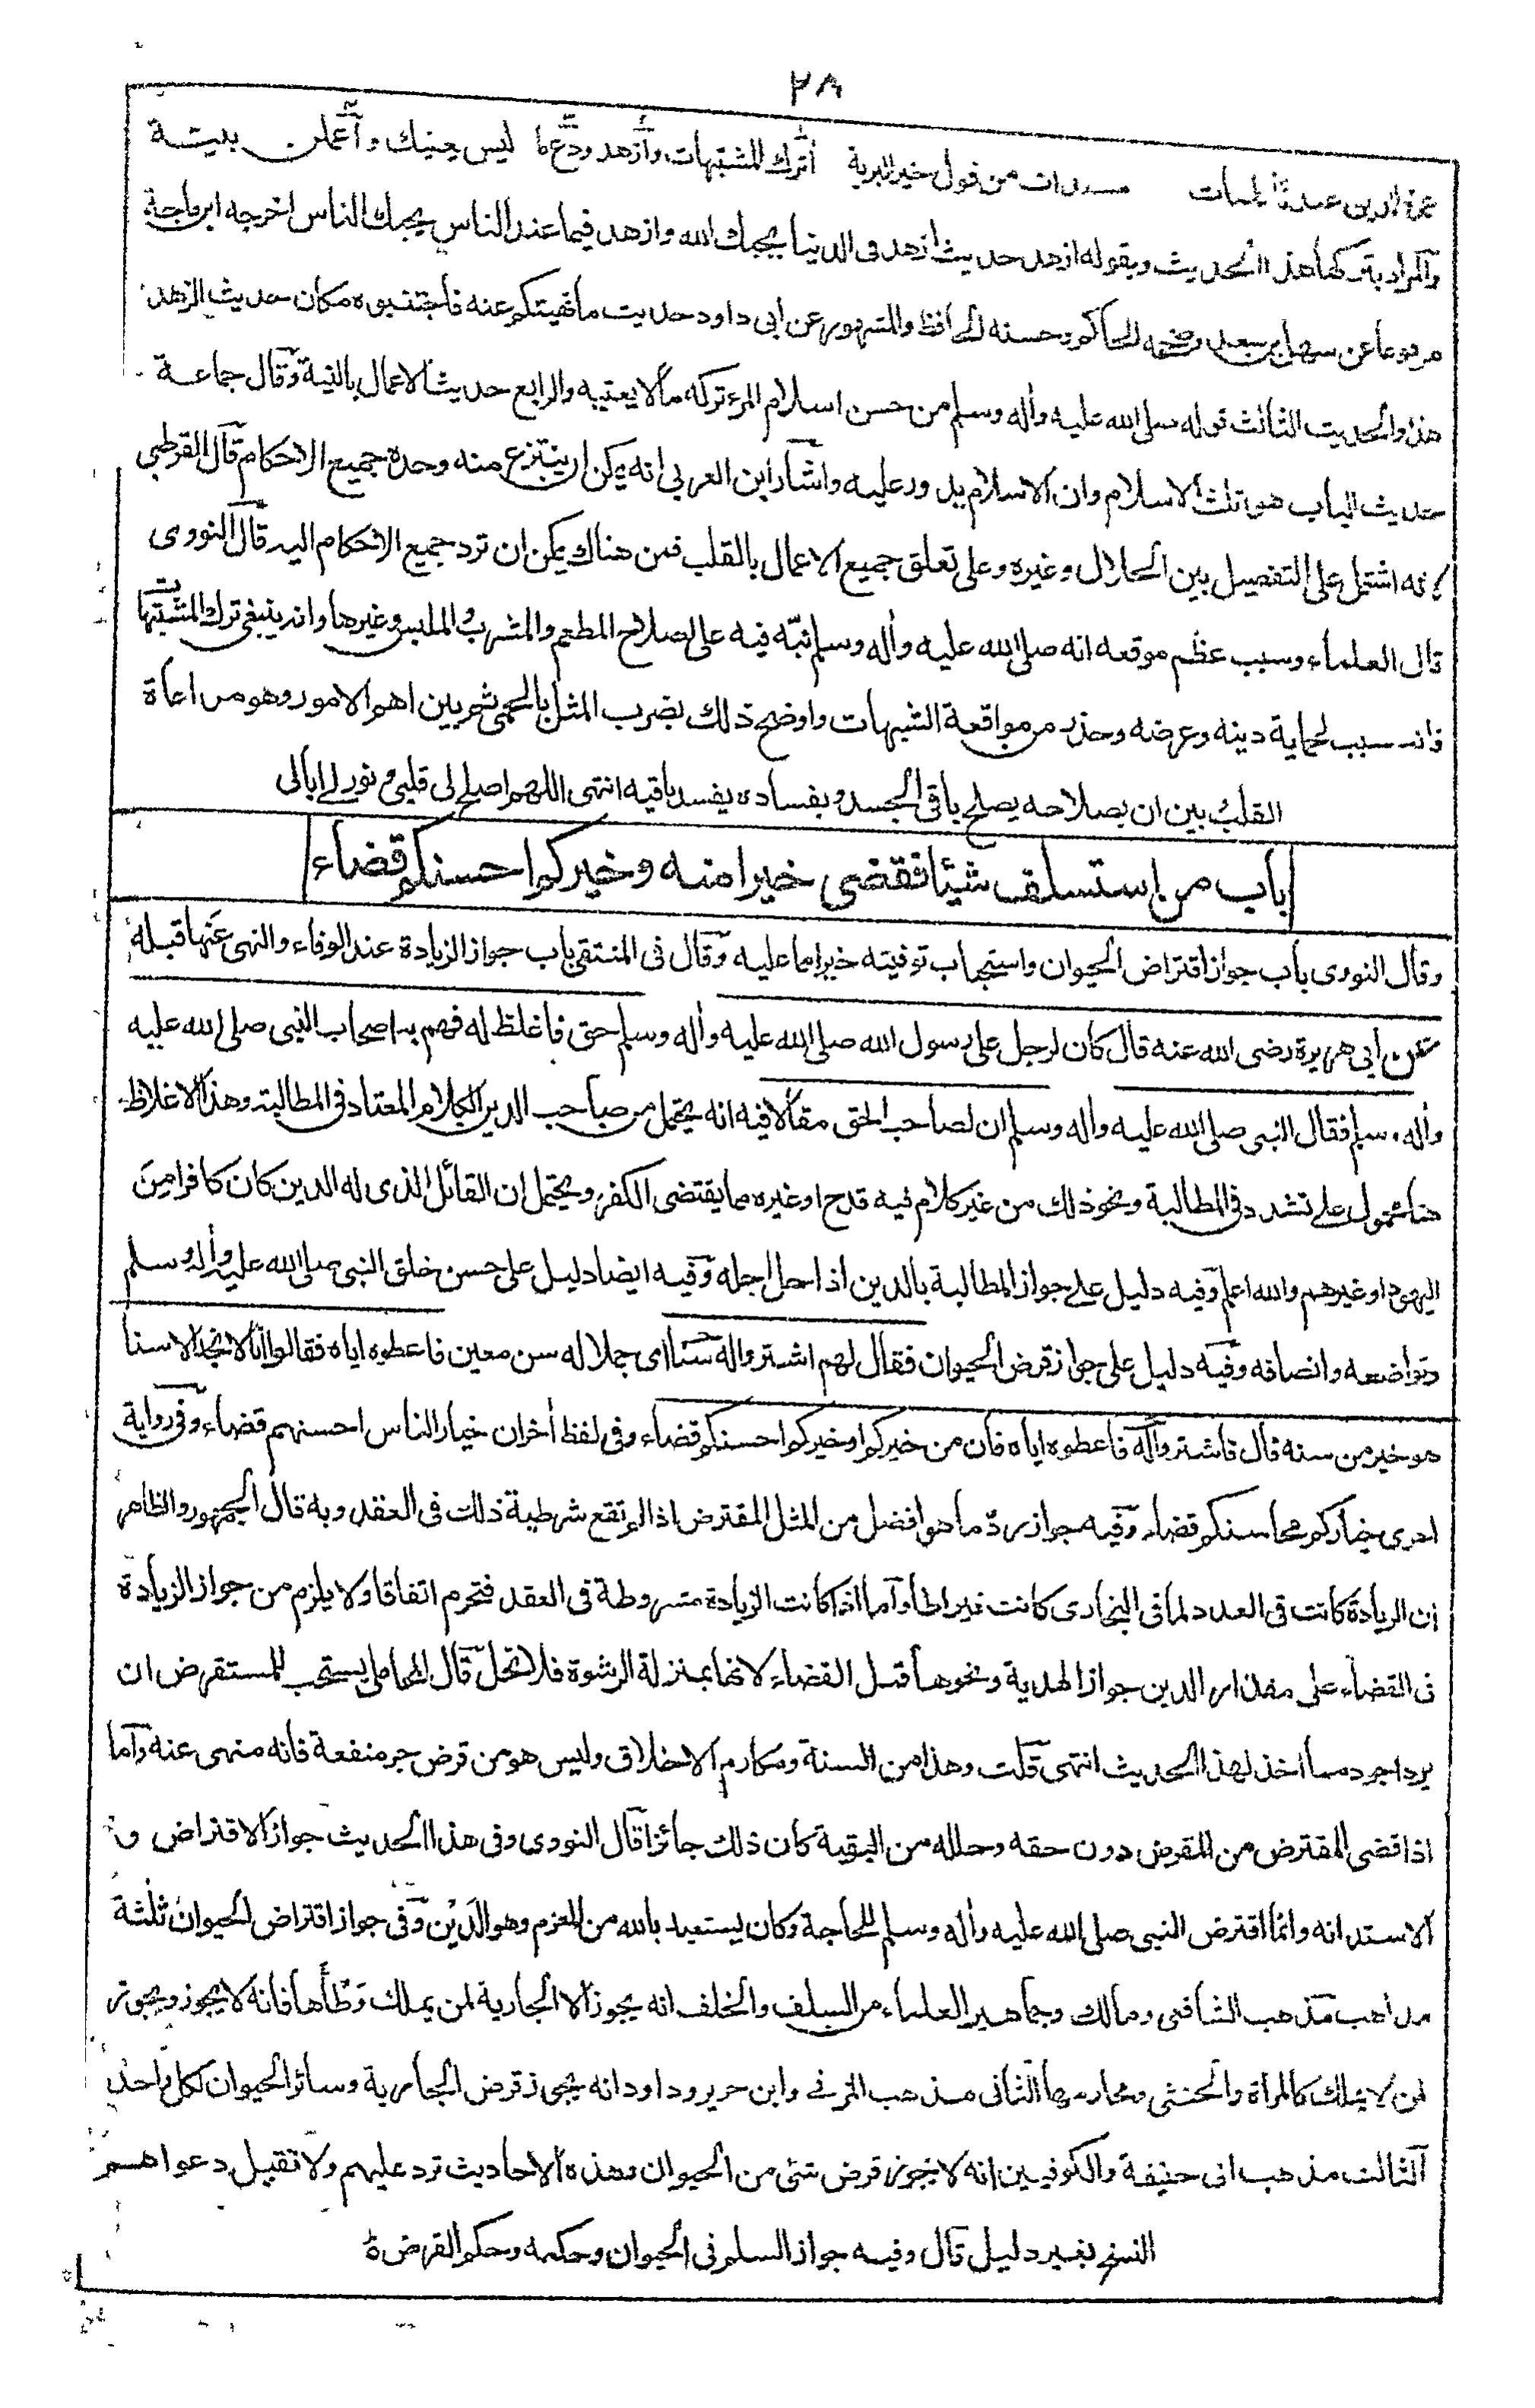 ٢٨
عمدة الدين عندنا كلمات مسندات من قول خير البرية أترك المشتبهات وأزهد ودع ما ليس يعنيك وأعملن بنية
والمراد بتركها هذا الحديث وبقوله ازهد حديث ازهد فى الدنيا يحبك الله وازهد فيما عند الناس يحبك الناس اخرجه ابن ماجة
مرفوعا عن سهل بن سعد وصححه الحاكم وحسنه الحافظ والمشهور عن ابى داود حديث ما نهيتكم عنه فاجتنبوه مكان حديث الزهد
هذا والحديث الثالث قوله صلى الله عليه وأله وسلم من حسن اسلام المرء تركه مالا يعنيه والرابع حديث الاعمال بالنية وقال جماعة
حديث الباب هو ثلث الاسلام وان الاسلام يدور عليه واشار ابن العربى انه يمكن ان ينتزع منه وحده جميع الاحكام قال القرطبى
لانه اشتمل على التفصيل بين الحلال وغيره وعلى تعلق جميع الاعمال بالقلب فمن هناك يمكن ان ترد جميع الاحكام اليه قال النووى
قال العلماء وسبب عظم موقعه انه صلى الله عليه وأله وسلم نبّه فيه على اصلاح المطعم والمشرب والملبس وغيرها وانه ينبغى ترك المشتبهات
فانه سبب لحماية دينه وعرضه وحذر من مواقعة الشبهات واوضح ذلك بضرب المثل بالحمى ثم بين اهم الامور وهو مراعاة
القلب بين ان بصلاحه يصلح باقى الجسد وبفساده يفسد باقيه انتهى اللهم اصلح لى قلبى ونور لى ابالى
باب من إستسلف شيئا فقضى خيرا منه وخيركم احسنكم قضاء
وقال النووى باب جواز اقتراض الحيوان واستحباب توفيته خيرا مما عليه وقال فى المنتقى باب جواز الزيادة عند الوفاء والنهى عنها قبله
عن أبى هريرة رضى الله عنه قال كان لرجل على رسول الله صلى الله عليه وأله وسلم حق فاغلظ له فهم به اصحاب النبى صلى الله عليه
وأله وسلم فقال النبى صلى الله عليه وأله وسلم ان لصاحب الحق مقالا فيه انه يحتمل من صاحب الدين الكلام المعتاد فى المطالبة وهذا الاغلاظ
هنا محمول على تشدد فى المطالبة ونحو ذلك من غير كلام فيه قدح او غيره مما يقتضى الكفر ويحتمل ان القائل الذى له الدين كان كافرا من
اليهود او غيرهم والله اعلم وفيه دليل على جواز المطالبة بالدين اذا حل اجله وفيه ايضا دليل على حسن خلق النبى صلى الله عليه وأله وسلم
وتواضعه وانصافه وفيه دليل على جواز قرض الحيوان فقال لهم اشتروا له سنا اى جملا له سن معين فاعطوه اياه فقالوا انا لا نجد الا سنا
هو خير من سنه قال فاشتروا له فاعطوه اياه فان من خيركم او خيركم احسنكم قضاء وفى لفظ أخر ان خيار الناس احسنهم قضاء وفى رواية
اخرى خياركم محاسنكم قضاء وفيه جواز ردّ ما هو افضل من المثل المقترض اذا لم تقع شرطية ذلك فى العقد وبه قال الجمهور والظاهر
ان الزيادة كانت فى العدد لما فى البخارى كانت قيراطا وأما اذا كانت الزيادة مشروطة فى العقد فتحرم اتفاقا ولا يلزم من جواز الزيادة
فى القضاء على مقدار الدين جواز الهدية ونحوها قبل القضاء لانها بمنزلة الرشوة فلا تحل قال المحاملى يستحب للمستقرض ان
يرد اجود مما أخذ لهذا الحديث انتهى قلت وهذا من السنة ومكارم الاخلاق وليس هو من قرض جر منفعة فانه منهى عنه وأما
اذا قضى المقترض من المقرض دون حقه وحلله من البقية كان ذلك جائزا قال النووى وفى هذا الحديث جواز الاقتراض و
الاستدانه وانما اقترض النبى صلى الله عليه وأله وسلم للحاجة وكان يستعيد بالله من المغرم وهو الدَيْن وفى جواز اقتراض الحيوان ثلثة
مذاهب مذهب الشافعى ومالك وجماهير العلماء من السلف والخلف انه يجوز الا الجارية لمن يملك وَطْأَها فانه لا يجوز ويجوز
لمن لا يملك كالمرأة والخنثى ومحارمها الثانى مذهب المزنى وابن جرير وداود انه يجوز قرض الجارية وسائر الحيوان لكل واحد
الثالث مذهب ابى حنيفة والكوفيين انه لا يجوز قرض شئ من الحيوان وهذه الاحاديث ترد عليهم ولا تقبل دعواهم
النسخ بغير دليل قال وفيه جواز السلم فى الحيوان وحكمه وحكم القرض